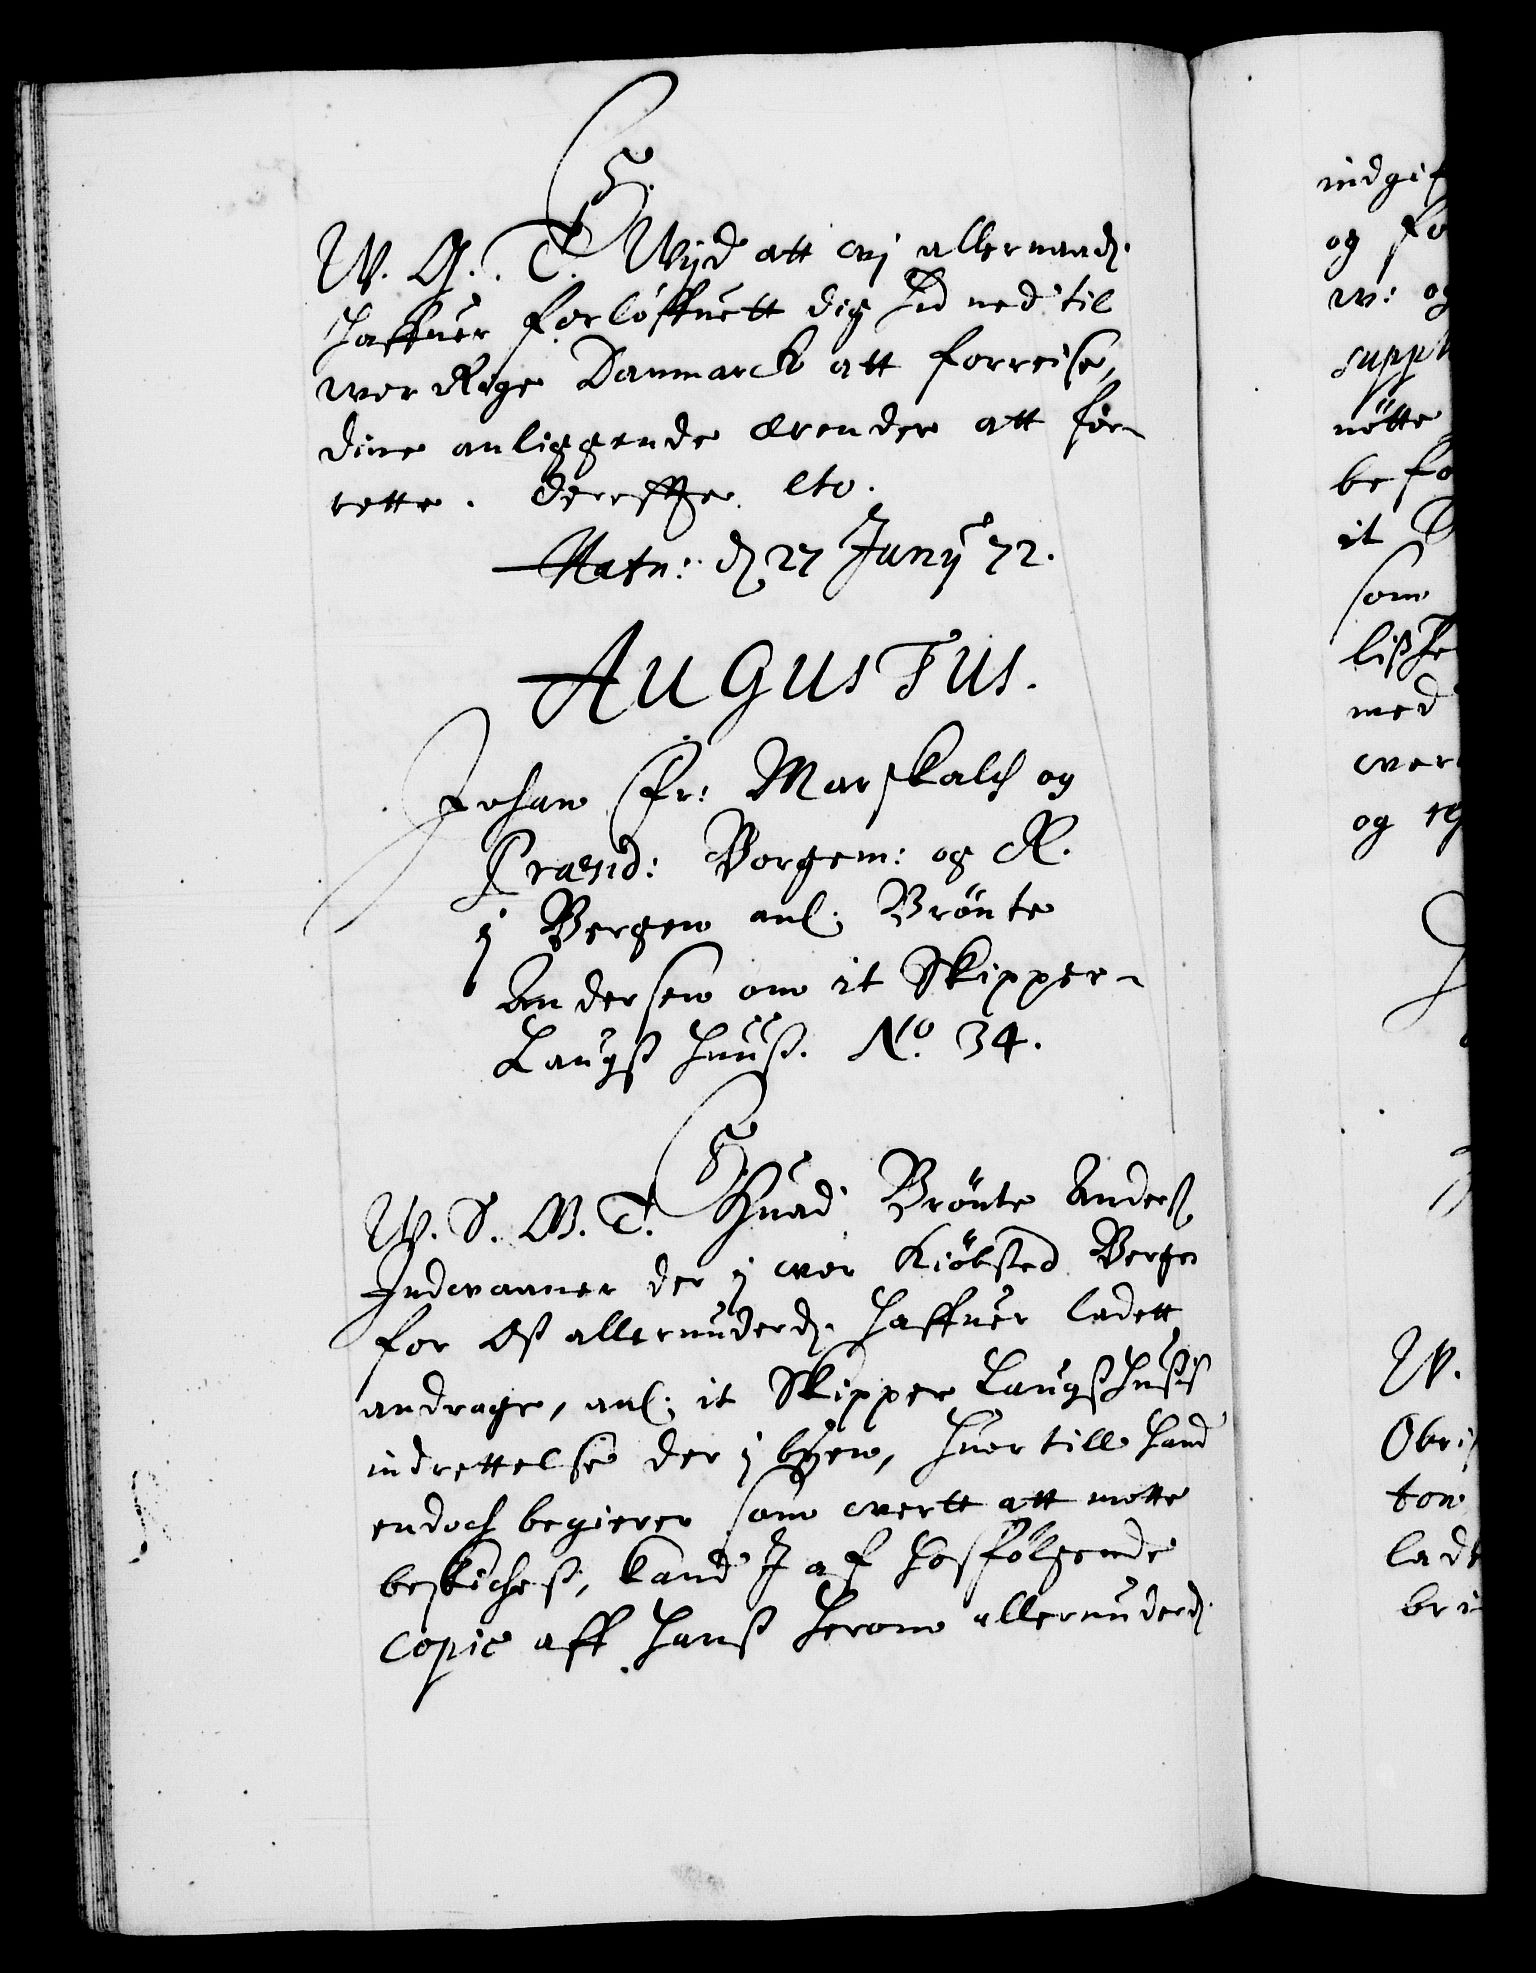 C5.
W. G. T. Wijd att wj allernaad.
haffuer forlöffuett dig hid ned til
wor Rige Danmarck att forreise,
dine anliggende ærender att for-
rette. Derefter etc.
Hafn: d. 27 Junij 72.
AuGusTus.
Johan Fr: Marskalch og
Præsid: Borgem: og R.
j Bergen anl: Brönte
Andersen om it Skipper-
Laugs huus. No. 34.
C5.
W. S. G. T. Huad Brönte Anders.
Indwaaner der j wor Kiöbsted Bergen
for Os allerunderd. haffuer ladett
andrage, anl: it Skipper Laugshusis
indrettelse der j byen, huor till hand
endoch begierer som wert att motte
beskickes, kand J af hosfölgende
copie aff hans herom allerunderd.
indgif
og fo
w: og
suppl
nötte
befo
it
som
lighe
med
wer
og
W.
Obri
ton
lad
bri